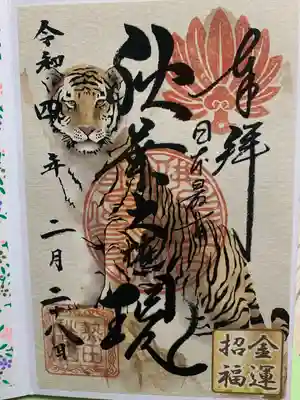 奉拝
日本
秋葉大権現
令和四年二月二十八日
金運
招福